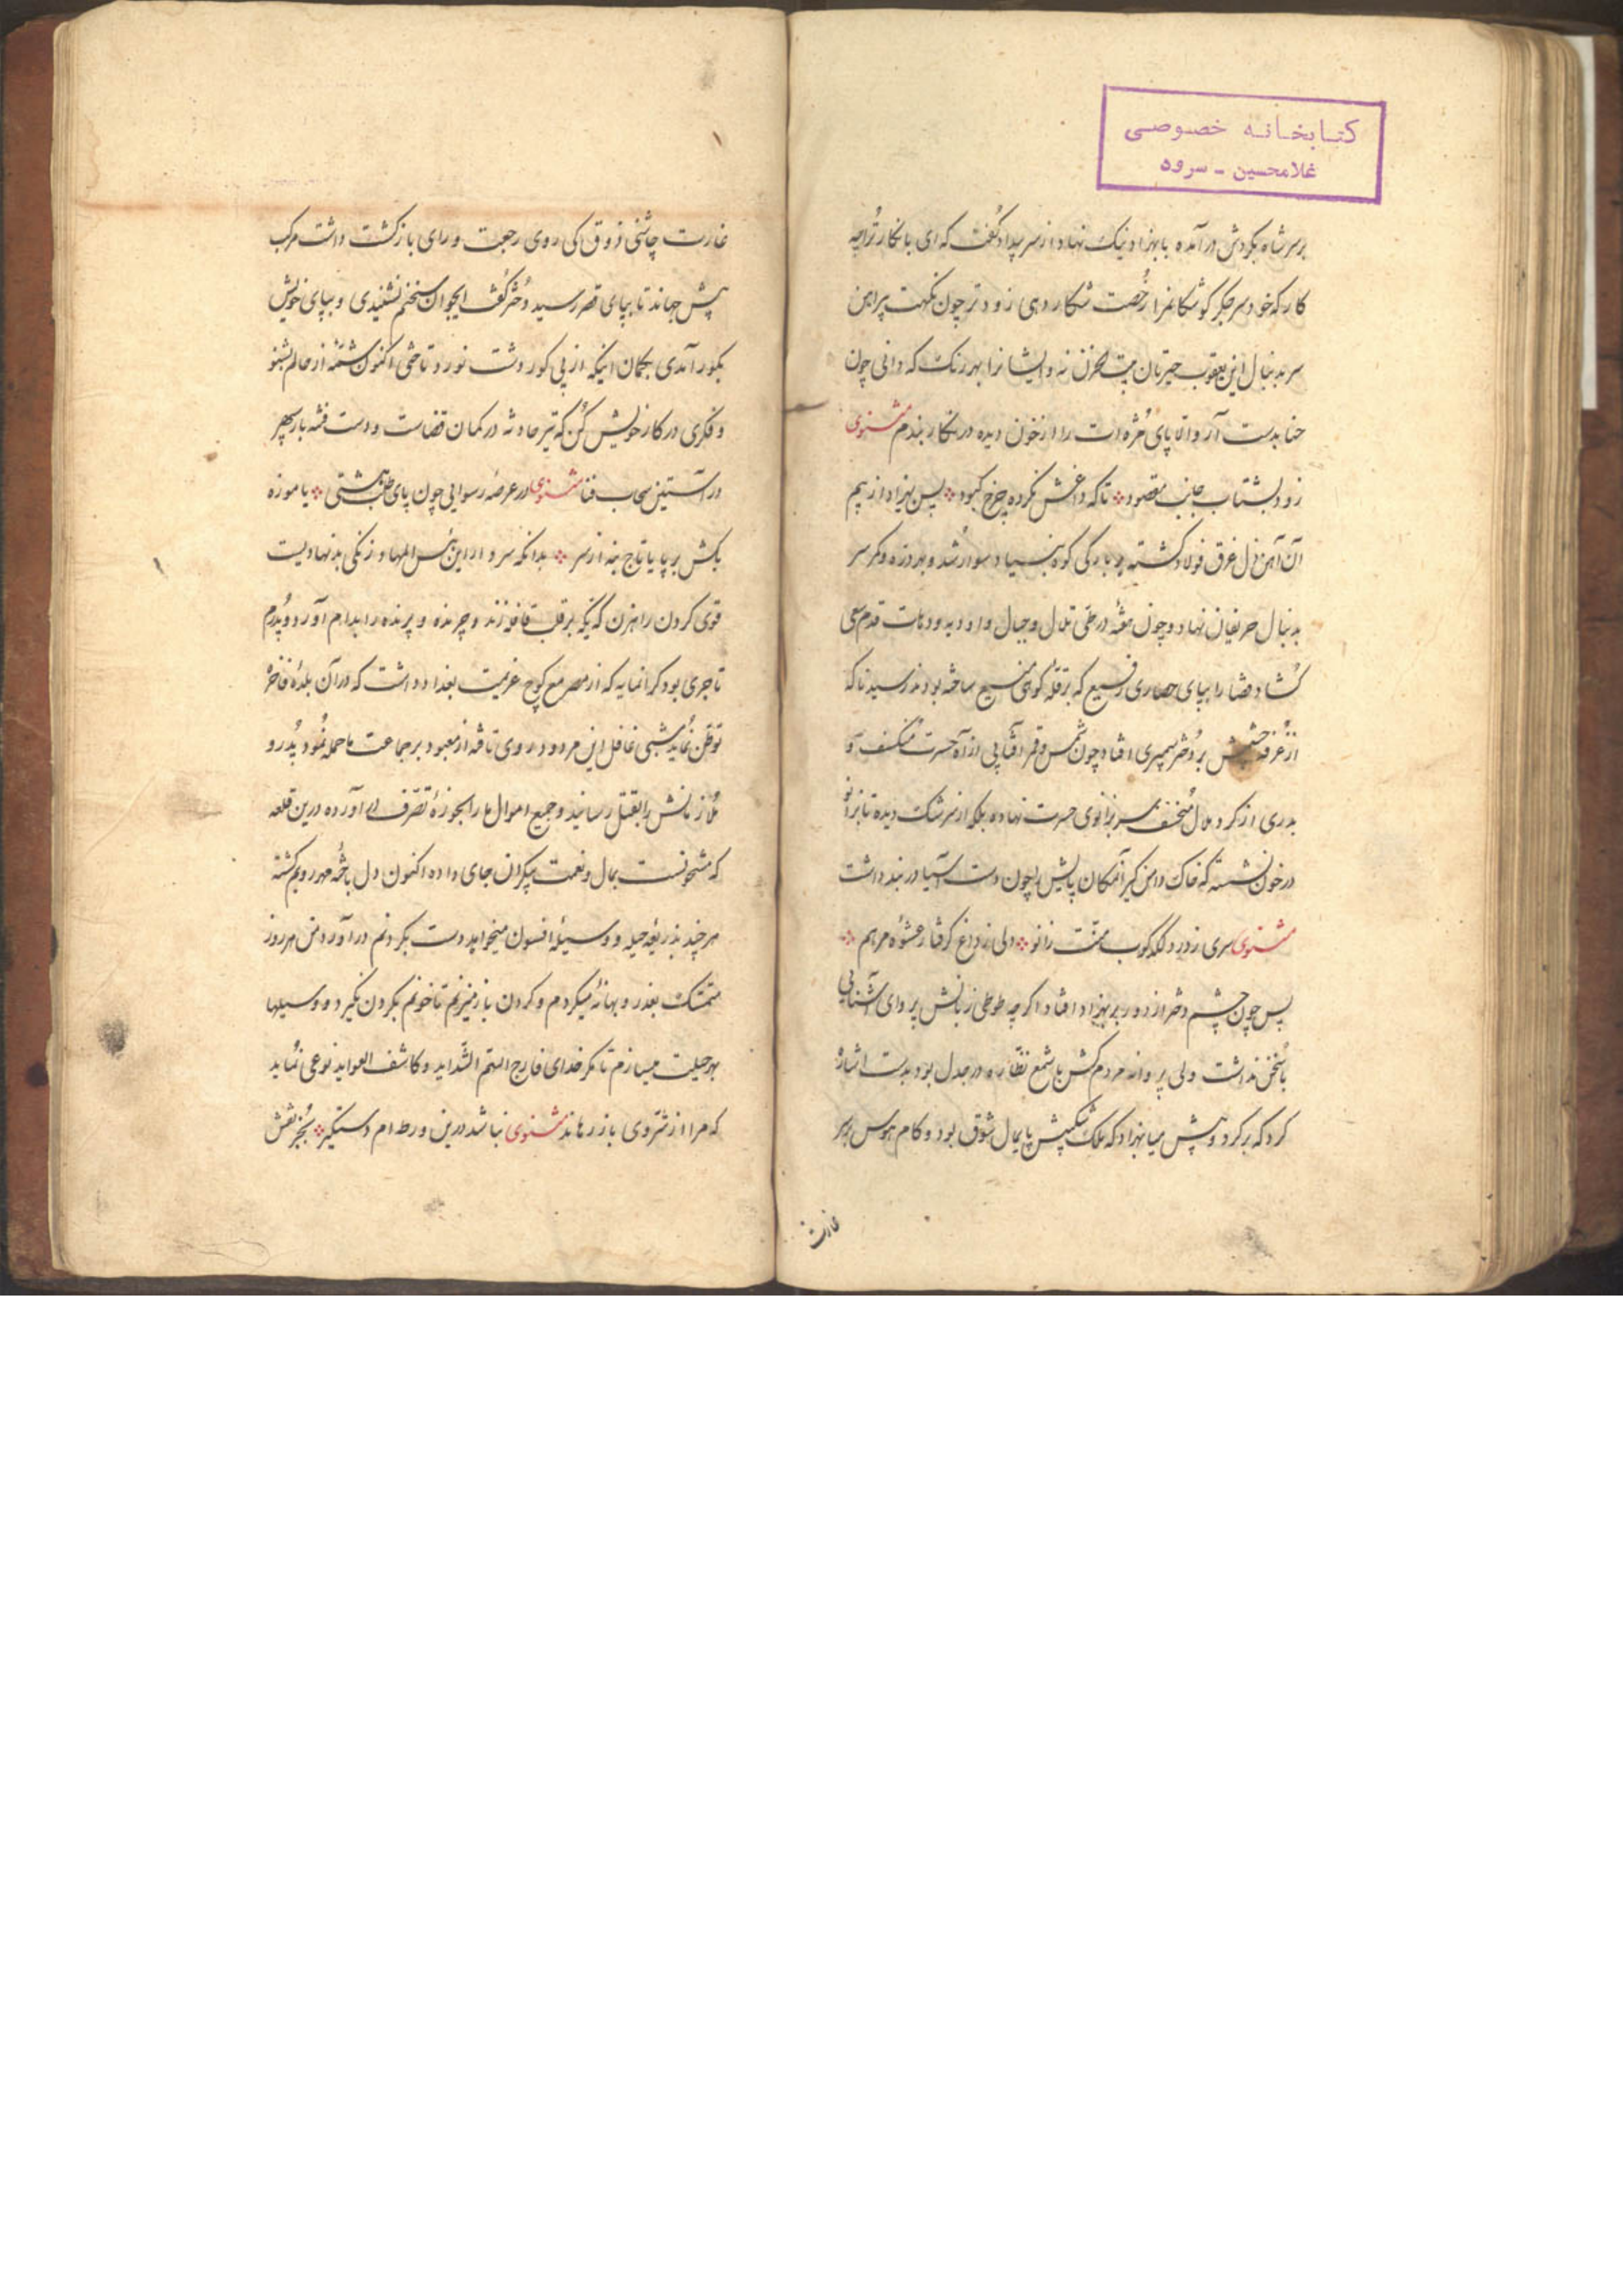 کتابخانه خصوصی
غلامحسین - سرود
بر سر شاه بگردش در آمده با بهزاد نیک نهاد از سر بیداد گفت که ای با نکار ترا چه
کار که خود سر جگر گوشکانم را رخصت شکار دهی زودتر چون نکهت پیراهن
سر بدنبال این یعقوب حیرتان بیت الحزن نه و ایشانرا بهر رنک که دانی چون
حنا بدست آر والا پای مژه ات را از خون دیده در نکار بندم مثنوی
زود بشتاب جانب مقصود تا که داغش نکرده چرخ کبود پس بهزاد از بیم
آن آهن دل غرق فولاد کشته بر بارکی کوه بنیاد سوار شد و بدروزه وکر سر
بدنبال حریفان نهاد و چون هفته در طی تلال و جبال و اودیه و دمات قدم سعی
کشاد قضا را بپای حصاری رفیع که بر قله کوهی منیع ساخته بودند رسید ناکه
از غرفه چشمش بر دختر سمنبری افتاد چون شمس و قمر آفتابی از آه حسرت منکسف و
بدری از کرد ملال منخسف سر بزانوی حسرت نهاده بلکه از سرشک دیده تا بزانو
در خون نشسته که خاک دامن کیر آنمکان پایش را چون دست آسیا در بند داشت
مثنوی سری از درد لکد کوب منت زانو دلی ز داغ کرفتار عشوه مرهم
پس چون چشم دختر از دور بر بهزاد افتاد اکر چه طوطی زبانش پروای آشنایی
با سخن نداشت ولی پروانه مردمکش با شمع نظاره در جدل بود بدست اشاره
کرد که برکرد و پیش میا بهزاد که ملک شکیبش پایمال شوق بود و کام هوس بر سر
غارت
غارت چاشنی ذوق کی روی رجعت و رای بازکشت داشت مرکب
پیش جهاند تا بپای قصر رسید دختر گفت ایجوان سخنم نشنیدی و بپای خویش
بکور آمدی بکمان اینکه از پی کور دشت نورد تاختی اکنون شمه از حالم بشنو
و فکری در کار خویش کن که تیر حادثه در کمان قضاست و دست فتنه بار سپهر
در آستین سحاب فنا مثنوی در عرصه رسوایی چون پای طلب هشتی یا موزه
بکش بر پا یا تاج بنه از سر بدانکه سردار این بئس المهاد زنکی بد نهادیست
قوی کردن راهزن که یکه بر قلب قافله زند و چرنده و پرنده را بدام آورد و پدرم
تاجری بود کرانمایه که از مصر مع کوچ عزیمت بغداد داشت که در آن بلده فاخره
توطن نماید شبی غافل این مردود روی تافته از معبود بر جماعت ما حمله نمود پدر و
ملازمانش را بقتل رسانید و جمیع اموال ما را بحوزه تصرف آورده درین قلعه
که مشحونست بمال و نعمت بیکران جای داده اکنون دل باخته مهر رویم کشته
هر چند بذریعه حیله و وسیله افسون میخواهد دست بکردنم در آورد من هر روز
متمسک بعذر و بهانه میکردم و کردن باز میزنم تا خونم بکردن نکیرد و وسیلها
بهر حیلت میسازم تا مکر خدای فارج الهم الشداید و کاشف العواید نوعی نماید
که مرا از شر وی باز رهاند مثنوی نباشد درین ورطه ام دستکیر بجز نقش